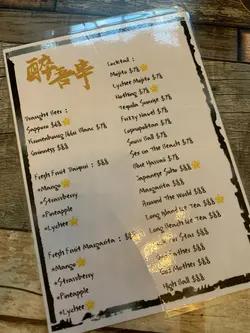 醉吾串
Draught Beer :
Sapporo $8.8
Kronenbourg 1664 Blanc $7.8
Guinness $8.8
Fresh Fruit Daiquiri : $8.8
*Mango
*Strawberry
*Pineapple
*Lychee
Fresh Fruit Margarita : $8.8
*Mango
*Strawberry
*Pineapple
*Lychee
Cocktail :
Mojito $7.8
Lychee Mojito $7.8
Nothing $7.8
Tequila Sunrise $7.8
Fuzzy Navel $7.8
Cosmopolitan $7.8
Snow Ball $7.8
Sex on the Beach $7.8
Blue Hawaii $7.8
Japanese Sake $8.8
Margarita $8.8
Around The World $8.8
Long Island Ice Tea $8.8
Long Beach Ice Tea $8.8
Star $8.8
Father $8.8
God Mother $8.8
High Ball $8.8